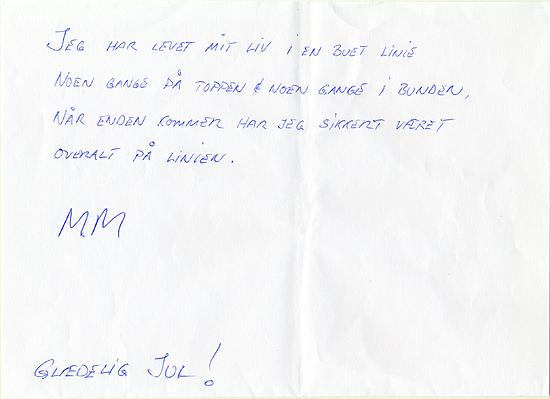 JEG HAR LEVET MIT LIV I EN BUET LINIE
NOEN GANGE PÅ TOPPEN & NOEN GANGE I BUNDEN,
NÅR ENDEN KOMMER HAR JEG SIKKERT VÆRET
OVERALT PÅ LINIEN.
M.M
GLÆDELIG JUL!